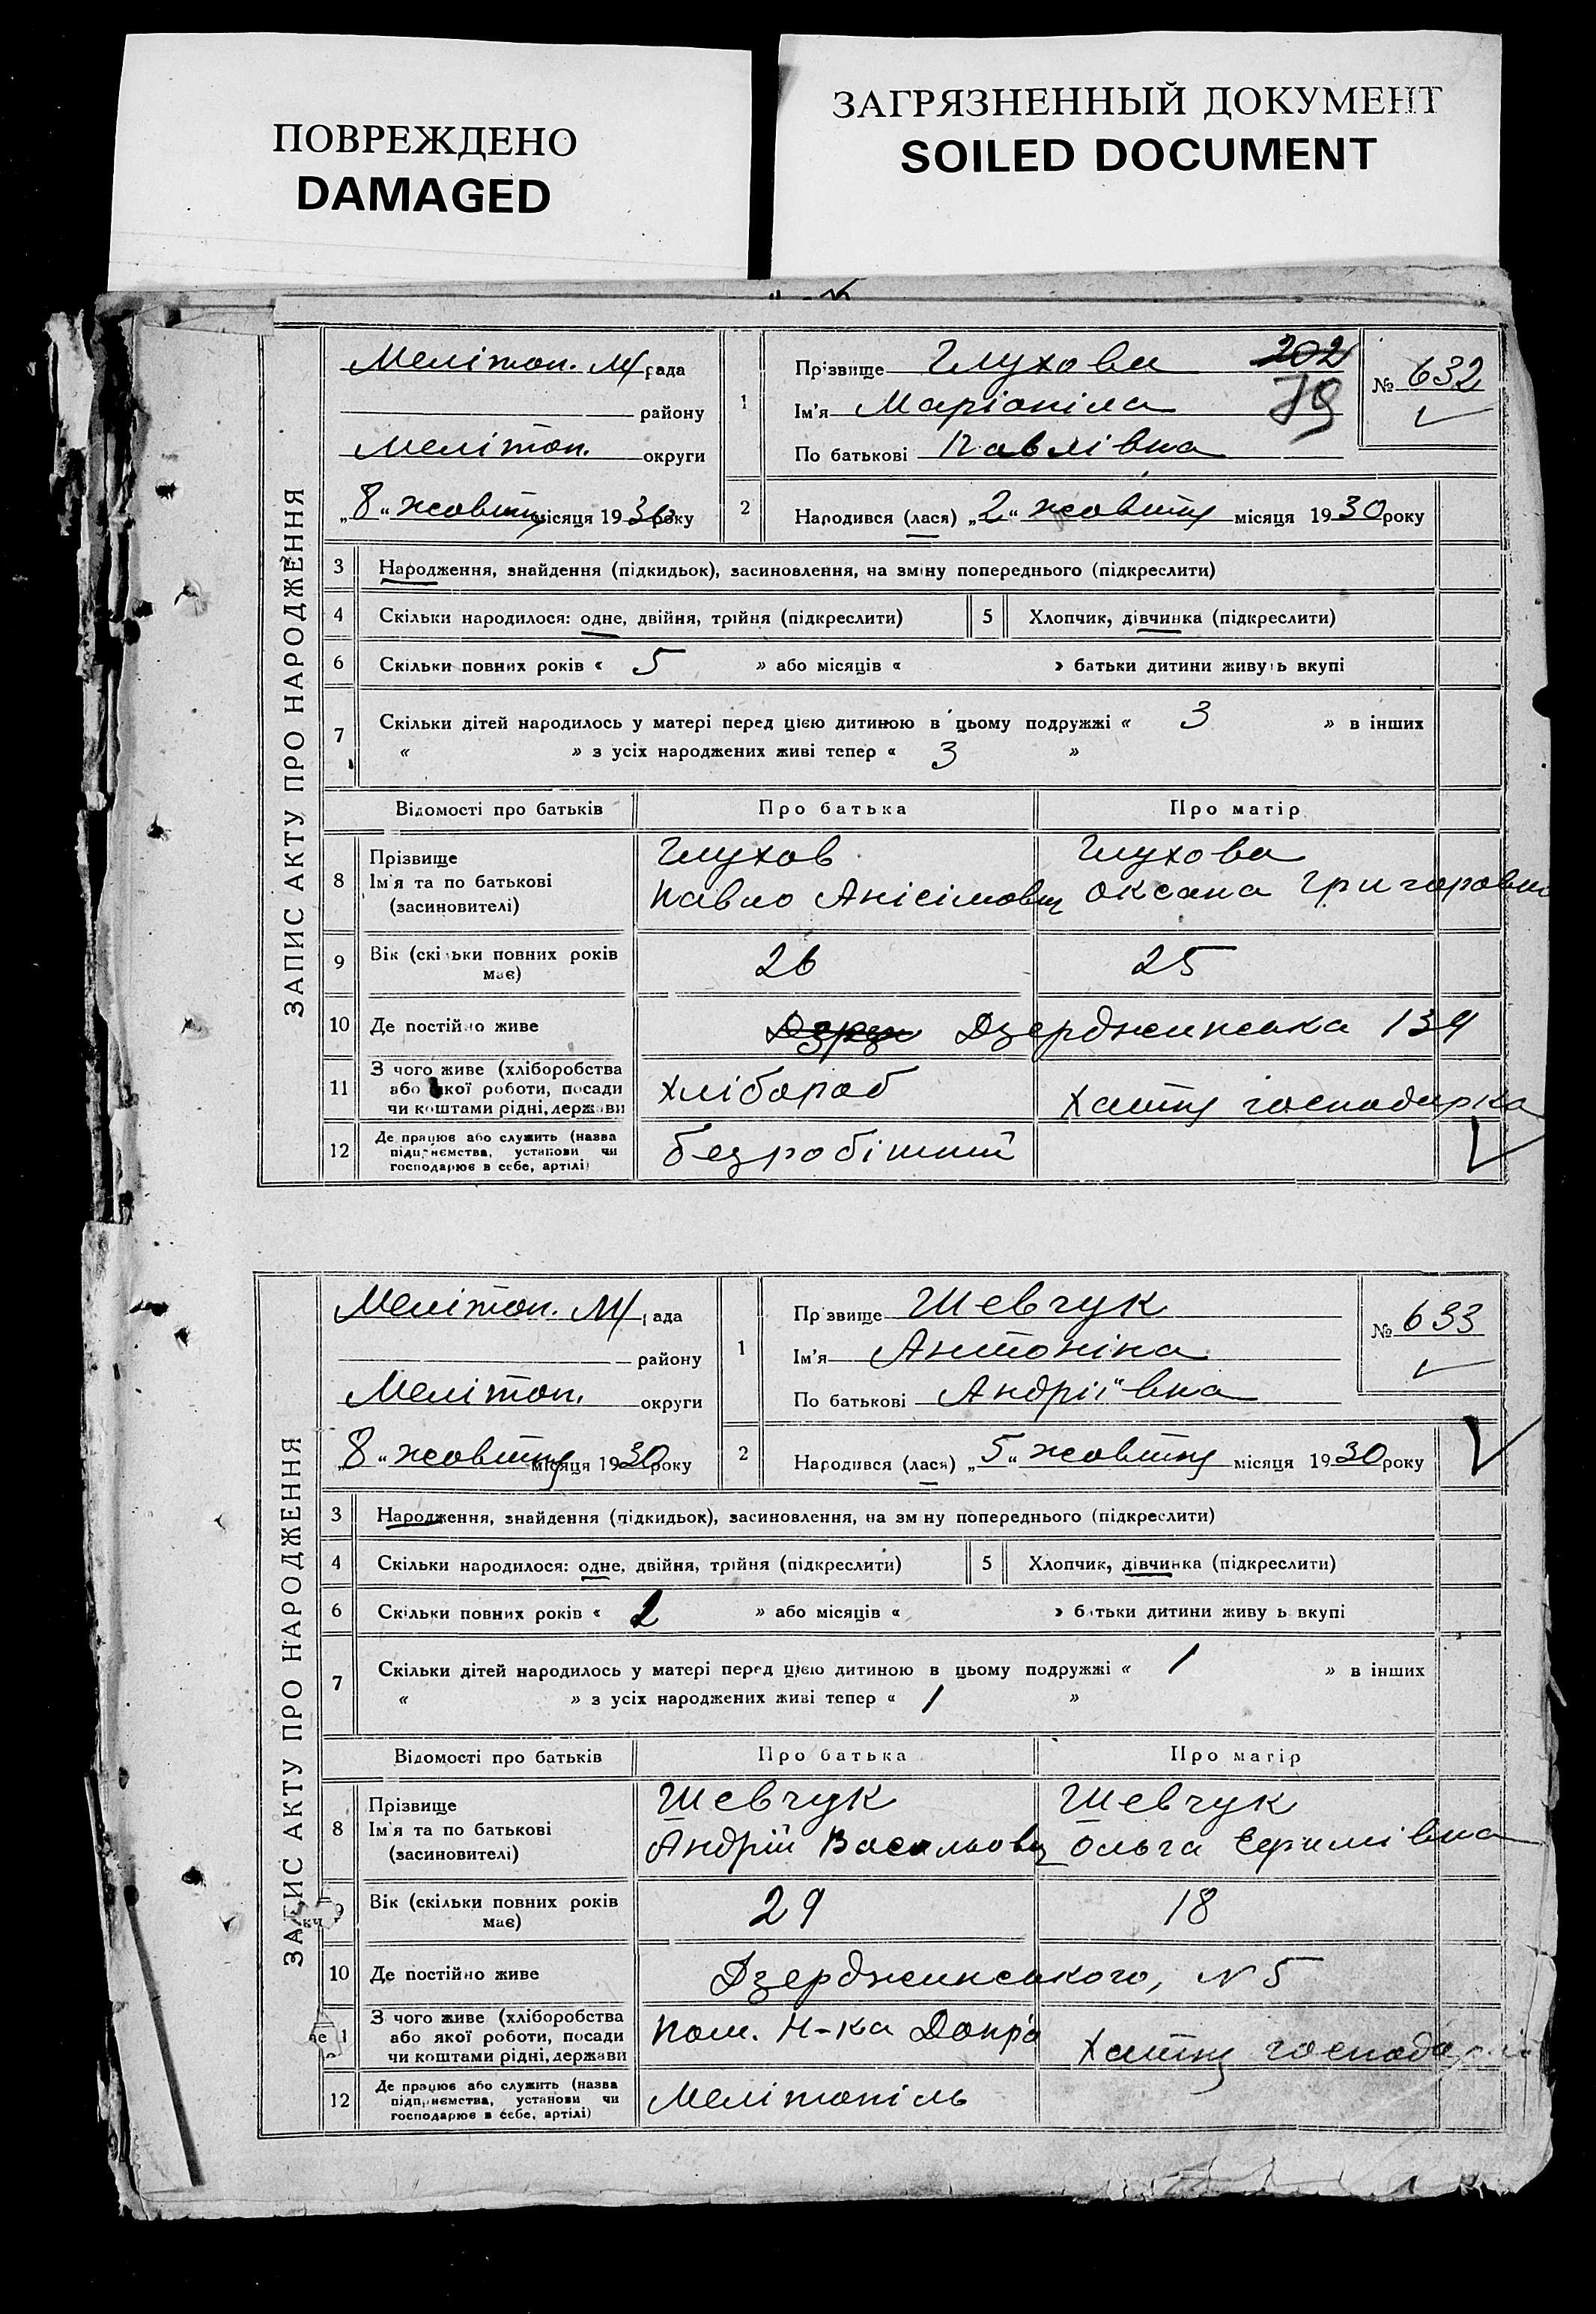 ПОВРЕЖДЕНО
DAMAGED
ЗАГРЯЗНЕННЫЙ ДОКУМЕНТ
SOILED DOCUMENT
ЗАПИС АКТУ ПРО НАРОДЖЕННЯ
Меліто​п. М/рада
району
Мелітоп. округи
„8“ жовтня місяця 1930 року
1
Прізвище Глухова 202
Ім'я Маріоніла 79
По батькові Павлівна
№ 632
2 Народився (лася) „2“ жовтня місяця 1930 року
3 Народження, знайдення (підкидьок), засиновлення, на зміну попереднього (підкреслити)
4 Скільки народилося: одне, двійня, трійня (підкреслити) 5 Хлопчик, дівчинка (підкреслити)
6 Скільки повних років « 5 » або місяців « » батьки дитини живуть вкупі
7 Скільки дітей народилось у матері перед цією дитиною в цьому подружжі « 3 » в інших
« » з усіх народжених живі тепер « 3 »
Відомості про батьків Про батька Про матір
8 Прізвище Глухов Глухова
Ім'я та по батькові Павло Анісімович Оксана Григоровна
(засиновителі)
9 Вік (скільки повних років має) 26 25
10 Де постійно живе Дзердженська 139
11 З чого живе (хліборобства
або якої роботи, посади
чи коштами рідні, держави Хлібороб Хатня господарка
12 Де працює або служить (назва
підприємства, установи чи
господарює в себе, артілі) безробітний
ЗАПИС АКТУ ПРО НАРОДЖЕННЯ
Мелітоп. М/рада
району
Мелітоп. округи
„8“ жовтня місяця 1930 року
1
Прізвище Шевчук
Ім'я Антоніна
По батькові Андріївна
№ 633
2 Народився (лася) „5“ жовтня місяця 1930 року
3 Народження, знайдення (підкидьок), засиновлення, на зміну попереднього (підкреслити)
4 Скільки народилося: одне, двійня, трійня (підкреслити) 5 Хлопчик, дівчинка (підкреслити)
6 Скільки повних років « 2 » або місяців « » батьки дитини живуть вкупі
7 Скільки дітей народилось у матері перед цією дитиною в цьому подружжі « 1 » в інших
« » з усіх народжених живі тепер « 1 »
Відомості про батьків Про батька Про матір
8 Прізвище Шевчук Шевчук
Ім'я та по батькові Андрій Васильович Ольга Юхимівна
(засиновителі)
9 Вік (скільки повних років має) 29 18
10 Де постійно живе Дзердженського, N 5
11 З чого живе (хліборобства
або якої роботи, посади
чи коштами рідні, держави пом. Н-ка Допр'а Хатня господарка
12 Де працює або служить (назва
підприємства, установи чи
господарює в себе, артілі) Мелітопіль